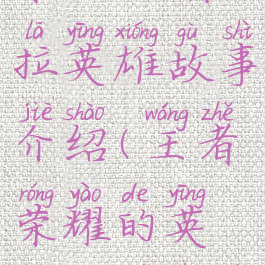 lā yīng xióng gù shì
拉英雄故事
jiè shào wáng zhě
介绍(王者
róng yào de yīng
荣耀的英